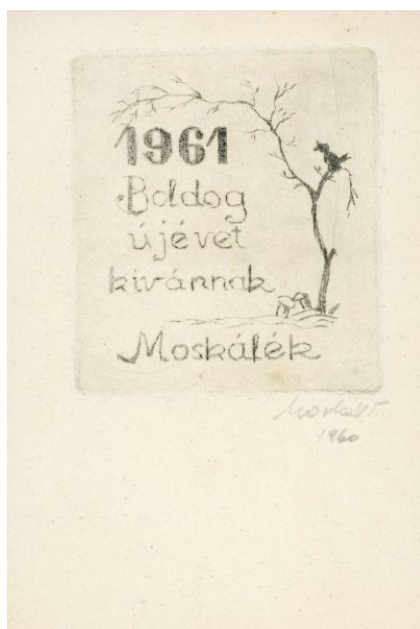 1961
Boldog
újévet
kivánnak
Moskálék
Moskál T
1960